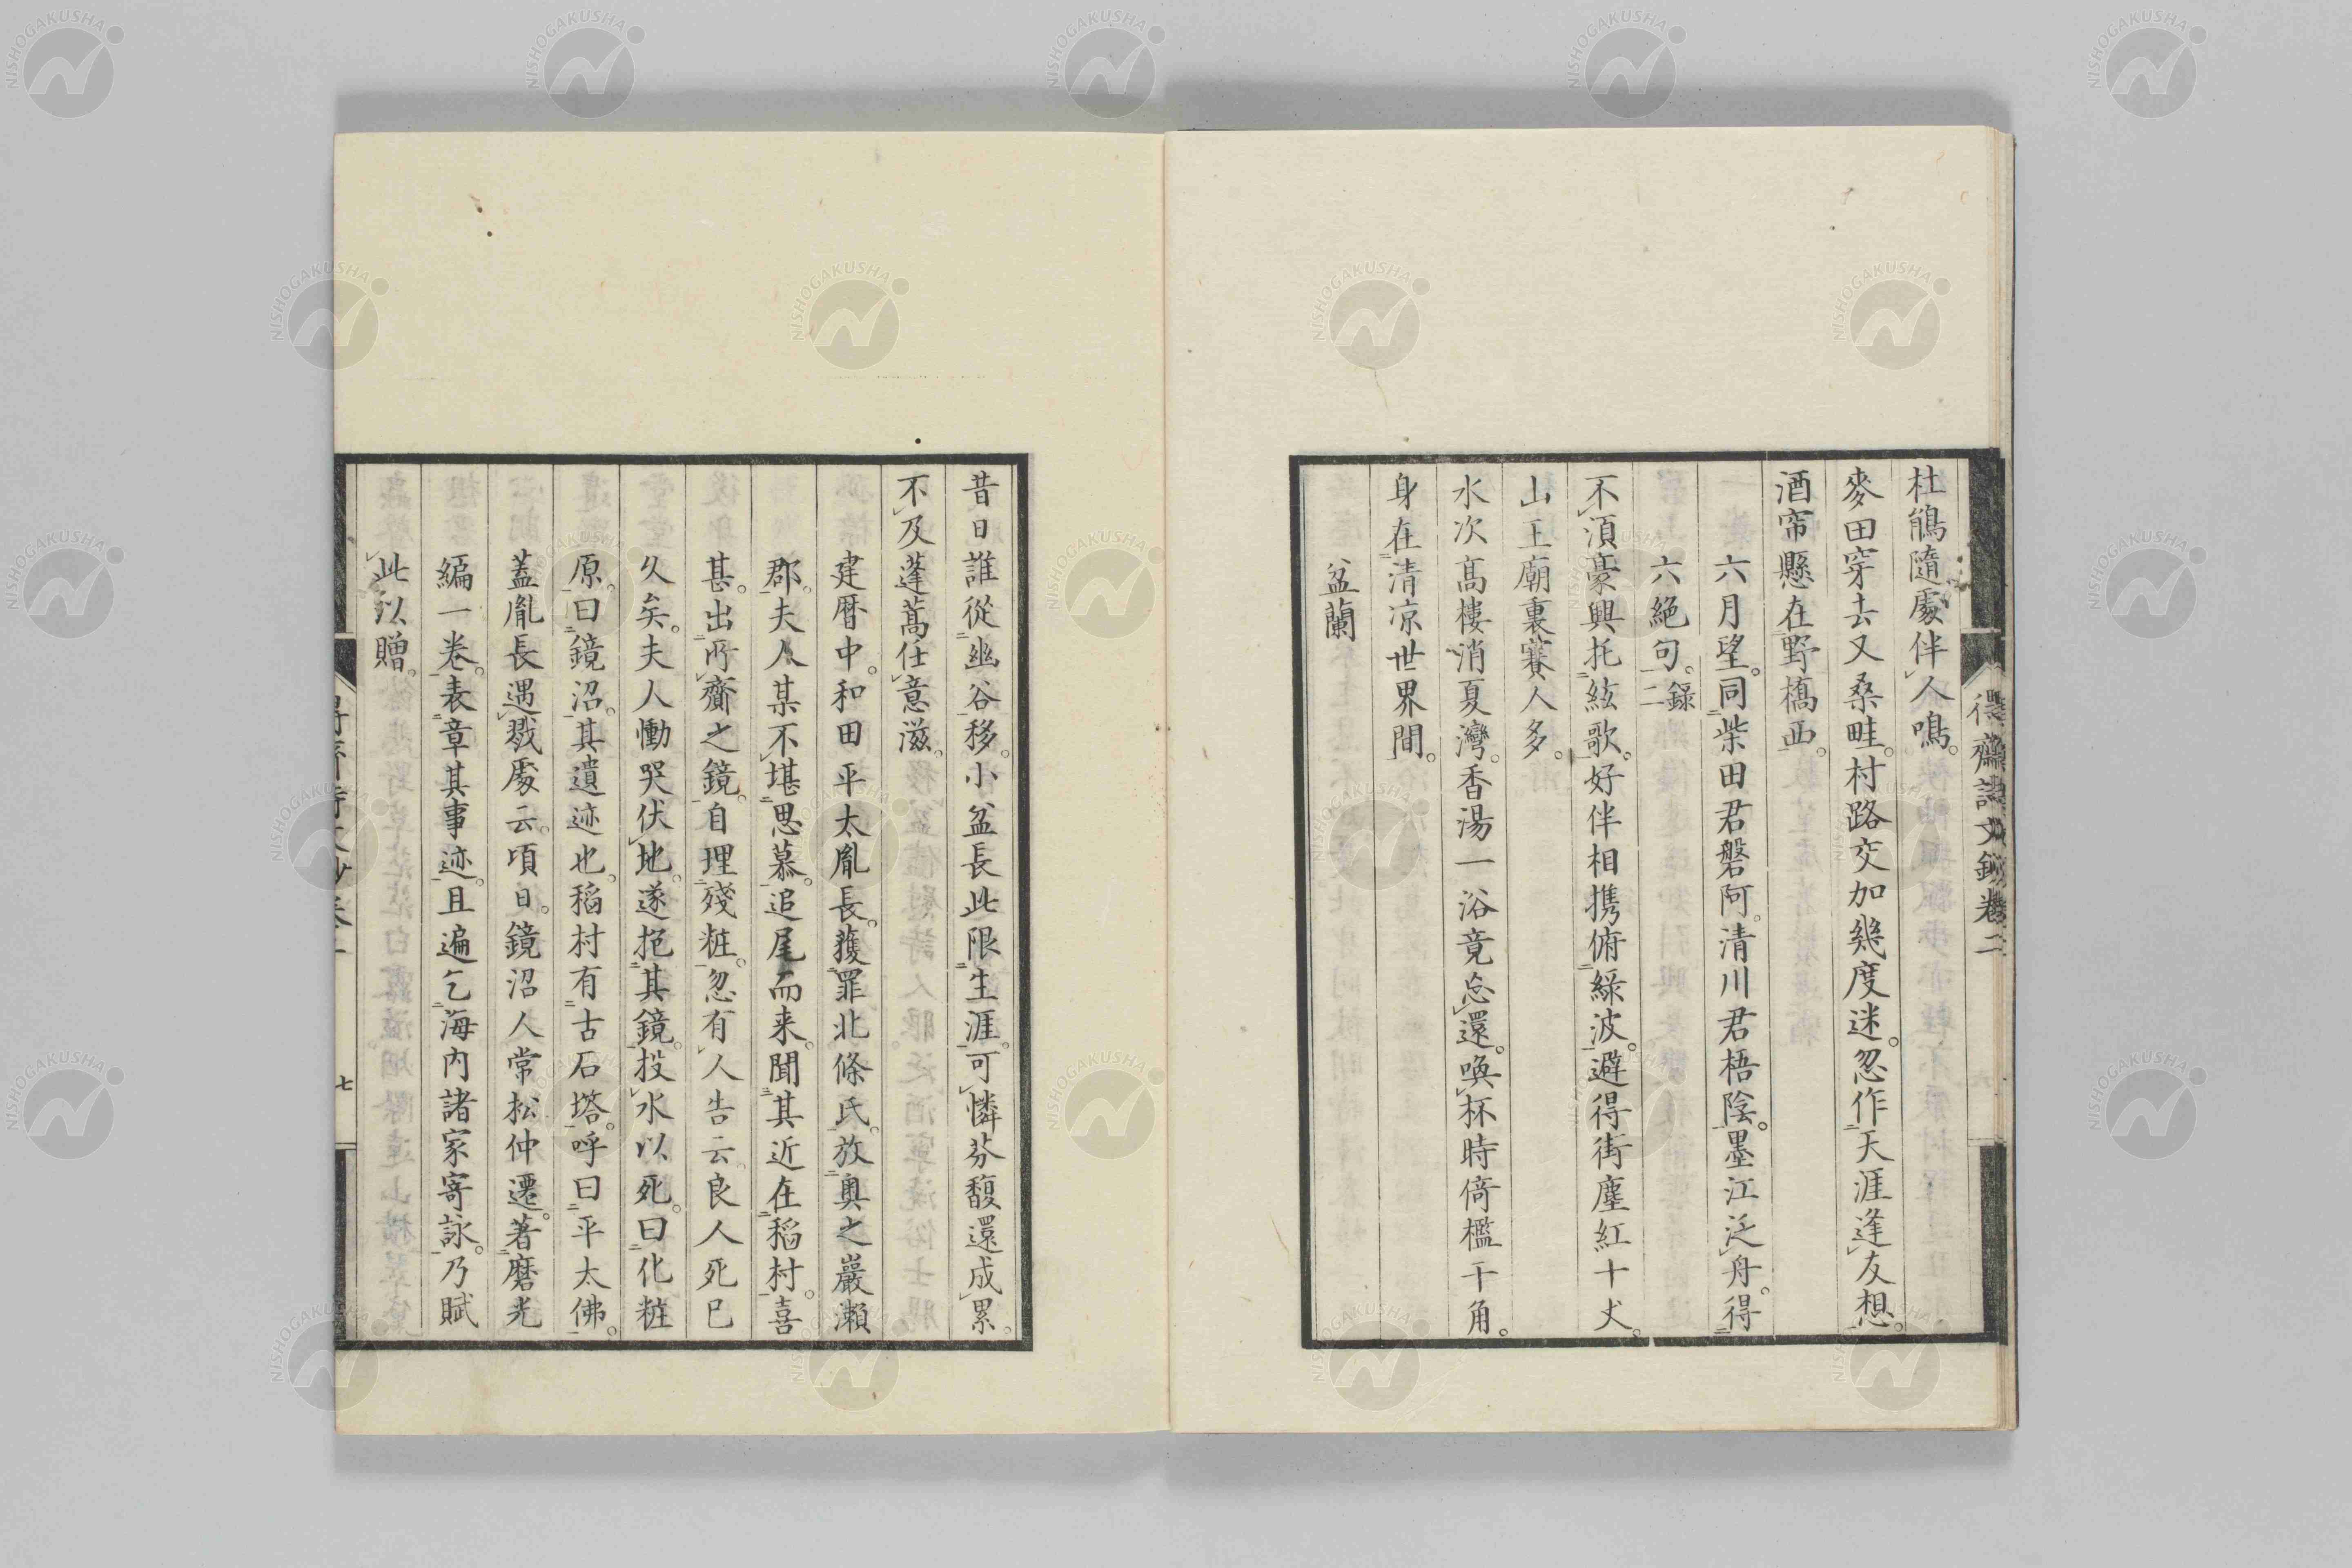 杜鵑隨處伴人鳴。
麥田穿去又桑畦。村路交加幾度迷。忽作天涯逢友想。
酒帘懸在野橋西。
六月望。同柴田君磐阿。清川君梧陰。墨江泛舟。得
六絶句。錄二
不須豪興托絃歌。好伴相携俯綠波。避得街塵紅十丈。
山王廟裏賽人多。
水次髙樓消夏灣。香湯一浴竟忘還。喚杯時倚檻干角。
身在清凉世界間。
盆蘭
得齋詩文鈔卷二
昔日誰從幽谷移。小盆長此限生涯。可憐芬馥還成累。
不及蓬蒿任意滋。
建暦中。和田平太胤長。獲罪北條氏。放奥之巖瀨
郡。夫人某不堪思慕。追尾而来。聞其近在稻村。喜
甚。出所齎之鏡。自理殘粧。忽有人告云。良人死已
久矣。夫人慟哭伏地。遂抱其鏡。投水以死。曰化粧
原。曰鏡沼。其遺迹也。稻村有古石塔。呼曰平太佛。
蓋胤長遇戮處云。頃日。鏡沼人常松仲遷。著磨光
編一卷。表章其事迹。且遍乞海内諸家寄詠。乃賦
此以贈。
七
NISHOGAKUSHA